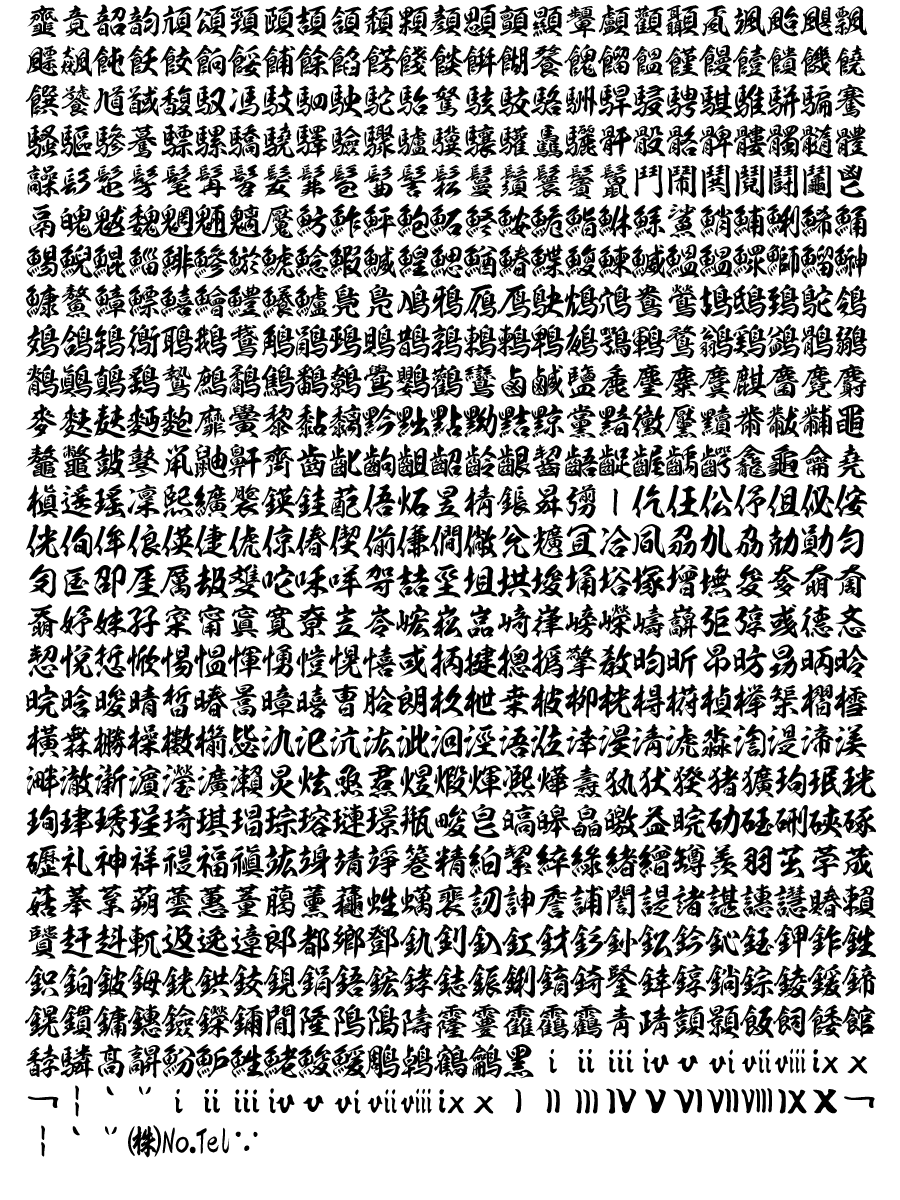 韲竟韶韵頏頌頸頤頡頷頽顆顏顋顫顯顰顱顴顳颪颯颱颶飄
飃飆飩飫餃餉餒餔餘餡餝餞餤餠餬餮餽餾饂饉饅饐饋饑饒
饌饕馗馘馥馭馮馼駟駛駝駘駑駭駮駱駲駻駸騁騏騅駢騙騫
騷驅驂驀驃騾驕驍驛驗驟驢驥驤驩驫驪骭骰骼髀髏髑髓體
髞髟髢髣髦髯髫髮髴髱髷髻鬆鬘鬚鬟鬢鬣鬥鬧鬨鬩鬪鬮鬯
鬲魄魃魏魍魎魑魘魴鮓鮃鮑鮖鮗鮟鮠鮨鮴鯀鯊鮹鯆鯏鯑鯒
鯣鯢鯤鯔鯡鰺鯲鯱鯰鰕鰔鰉鰓鰌鰆鰈鰒鰊鰄鰮鰛鰥鰤鰡鰰
鱇鰲鱆鰾鱚鱠鱧鱶鱸鳧鳬鳰鴉鴈鳫鴃鴆鴪鴦鶯鴣鴟鵄鴕鴒
鵁鴿鴾鵆鵈鵝鵞鵤鵑鵐鵙鵲鶉鶇鶫鵯鵺鶚鶤鶩鶲鷄鷁鶻鶸
鶺鷆鷏鷂鷙鷓鷸鷦鷭鷯鷽鸚鸛鸞鹵鹹鹽麁麈麋麌麒麕麑麝
麥麩麸麪麭靡黌黎黏黐黔黜點黝黠黥黨黯黴黶黷黹黻黼黽
鼇鼈皷鼕鼡鼬鼾齊齒齔齣齟齠齡齦齧齬齪齷齲齶龕龜龠堯
槇遙瑤凜熙纊褜鍈銈蓜俉炻昱棈鋹曻彅丨仡仼伀伃伹佖侒
侊侚侔俍偀倢俿倞偆偰偂傔僴僘兊兤冝冾凬刕劜劦勀勛匀
匇匤卲厓厲叝﨎咜咊咩哿喆坙坥垬埈埇﨏塚增墲夋奓奛奝
奣妤妹孖寀甯寘寬尞岦岺峵崧嵓﨑嵂嵭嶸嶹巐弡弴彧德忞
恝悅悊惞惕愠惲愑愷愰憘戓抦揵摠撝擎敎昀昕昻昉昮昞昤
晥晗晙晴晳暙暠暲暿曺朎朗杦枻桒柀栁桄棏﨓楨﨔榘槢樰
橫橆橳橾櫢櫤毖氿汜沆汯泚洄涇浯涖涬淏淸淲淼渹湜渧渼
溿澈澵濵瀅瀇瀨炅炫焏焄煜煆煇凞燁燾犱犾猤猪獷玽珉珖
珣珒琇珵琦琪琩琮瑢璉璟甁畯皂皜皞皛皦益睆劯砡硎硤硺
礰礼神祥禔福禛竑竧靖竫箞精絈絜綷綠緖繒罇羡羽茁荢荿
菇菶葈蒴蕓蕙蕫﨟薰蘒﨡蠇裵訒訷詹誧誾諟諸諶譓譿賰賴
贒赶﨣軏﨤逸遧郞都鄕鄧釚釗釞釭釮釤釥鈆鈐鈊鈺鉀鈼鉎
鉙鉑鈹鉧銧鉷鉸鋧鋗鋙鋐﨧鋕鋠鋓錥錡鋻﨨錞鋿錝錂鍰鍗
鎤鏆鏞鏸鐱鑅鑈閒隆﨩隝隯霳霻靃靍靏靑靕顗顥飯飼餧館
馞驎髙髜魵魲鮏鮱鮻鰀鵰鵫鶴鸙黑ⅰⅱⅲⅳⅴⅵⅶⅷⅸⅹ
￢￤＇＂ⅰⅱⅲⅳⅴⅵⅶⅷⅸⅹⅠⅡⅢⅣⅤⅥⅦⅧⅨⅩ￢
￤＇＂㈱No.Tel∵